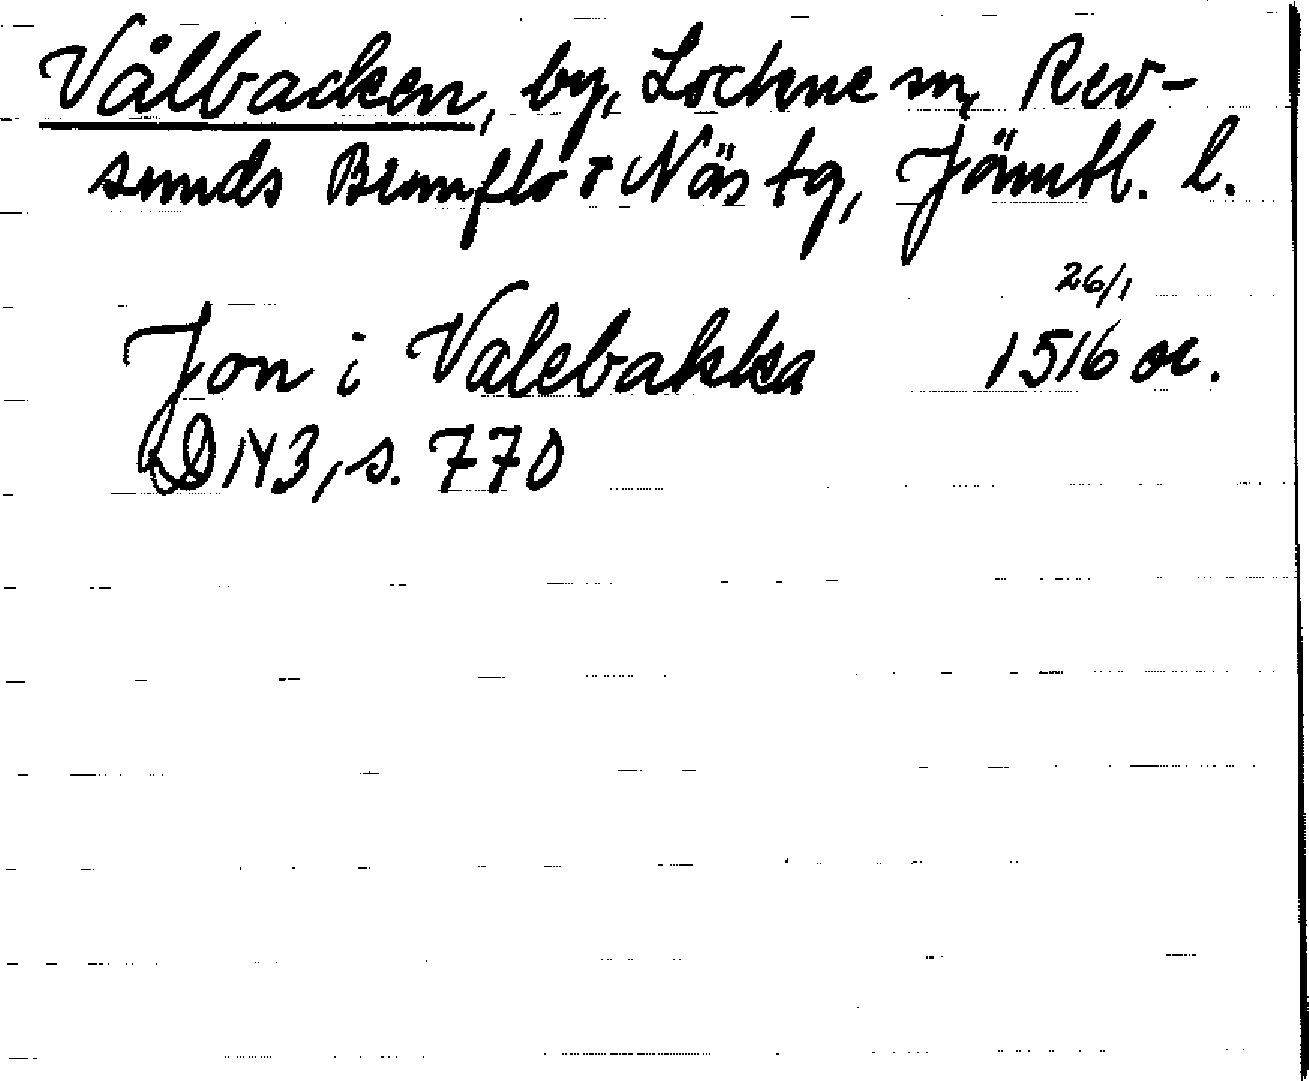 Vålbacken, by, Lockne sn, Rev-
sunds Brunflo o Näs tg, Jämtl. l.
26/1
Jon i Valebakka 1516 or.
DN 3, s. 770